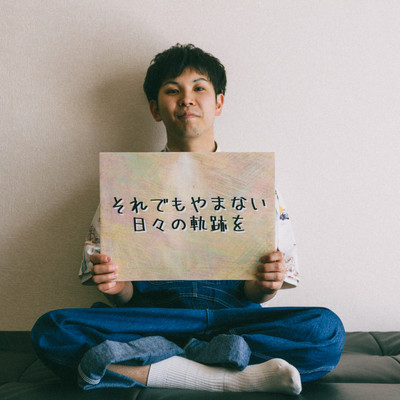 それでもやまない
日々の軌跡を